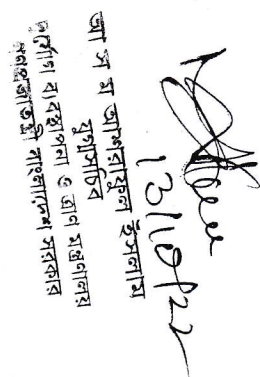 13/10/22
আ স ম আশরাফুল ইসলাম
যুগ্মসচিব
দুর্যোগ ব্যবস্থাপনা ও ত্রাণ মন্ত্রণালয়
গণপ্রজাতন্ত্রী বাংলাদেশ সরকার